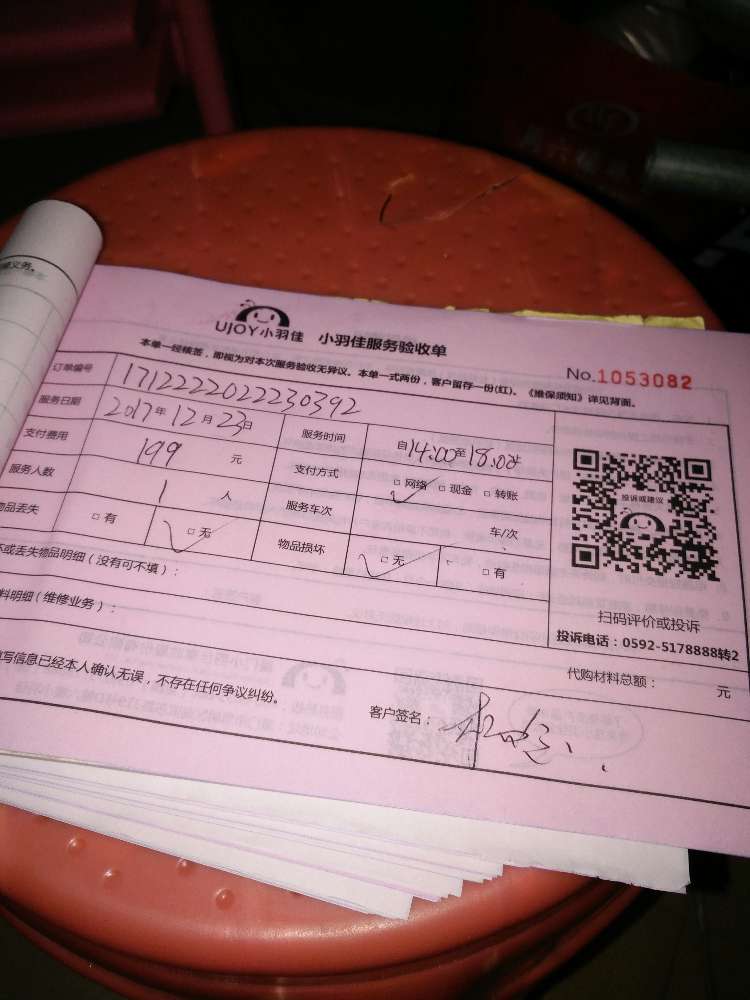 UJOY小羽佳 小羽佳服务验收单
本单一经核签，即视为对本次服务验收无异议。本单一式两份，客户留存一份(红)。《维保须知》详见背面。
No.1053082
订单编号 1712222022230392
服务日期 2017年12月23日 服务时间 自14:00至18:00
支付费用 199 元 支付方式 □网络 □现金 □转账
服务人数 1 人 服务车次 车/次
物品丢失 □有 □无 物品损坏 □无 □有
坏或丢失物品明细（没有可不填）：
料明细（维修业务）：
投诉或建议
扫码评价或投诉
投诉电话：0592-5178888转2
代购材料总额： 元
填写信息已经本人确认无误，不存在任何争议纠纷。
客户签名：